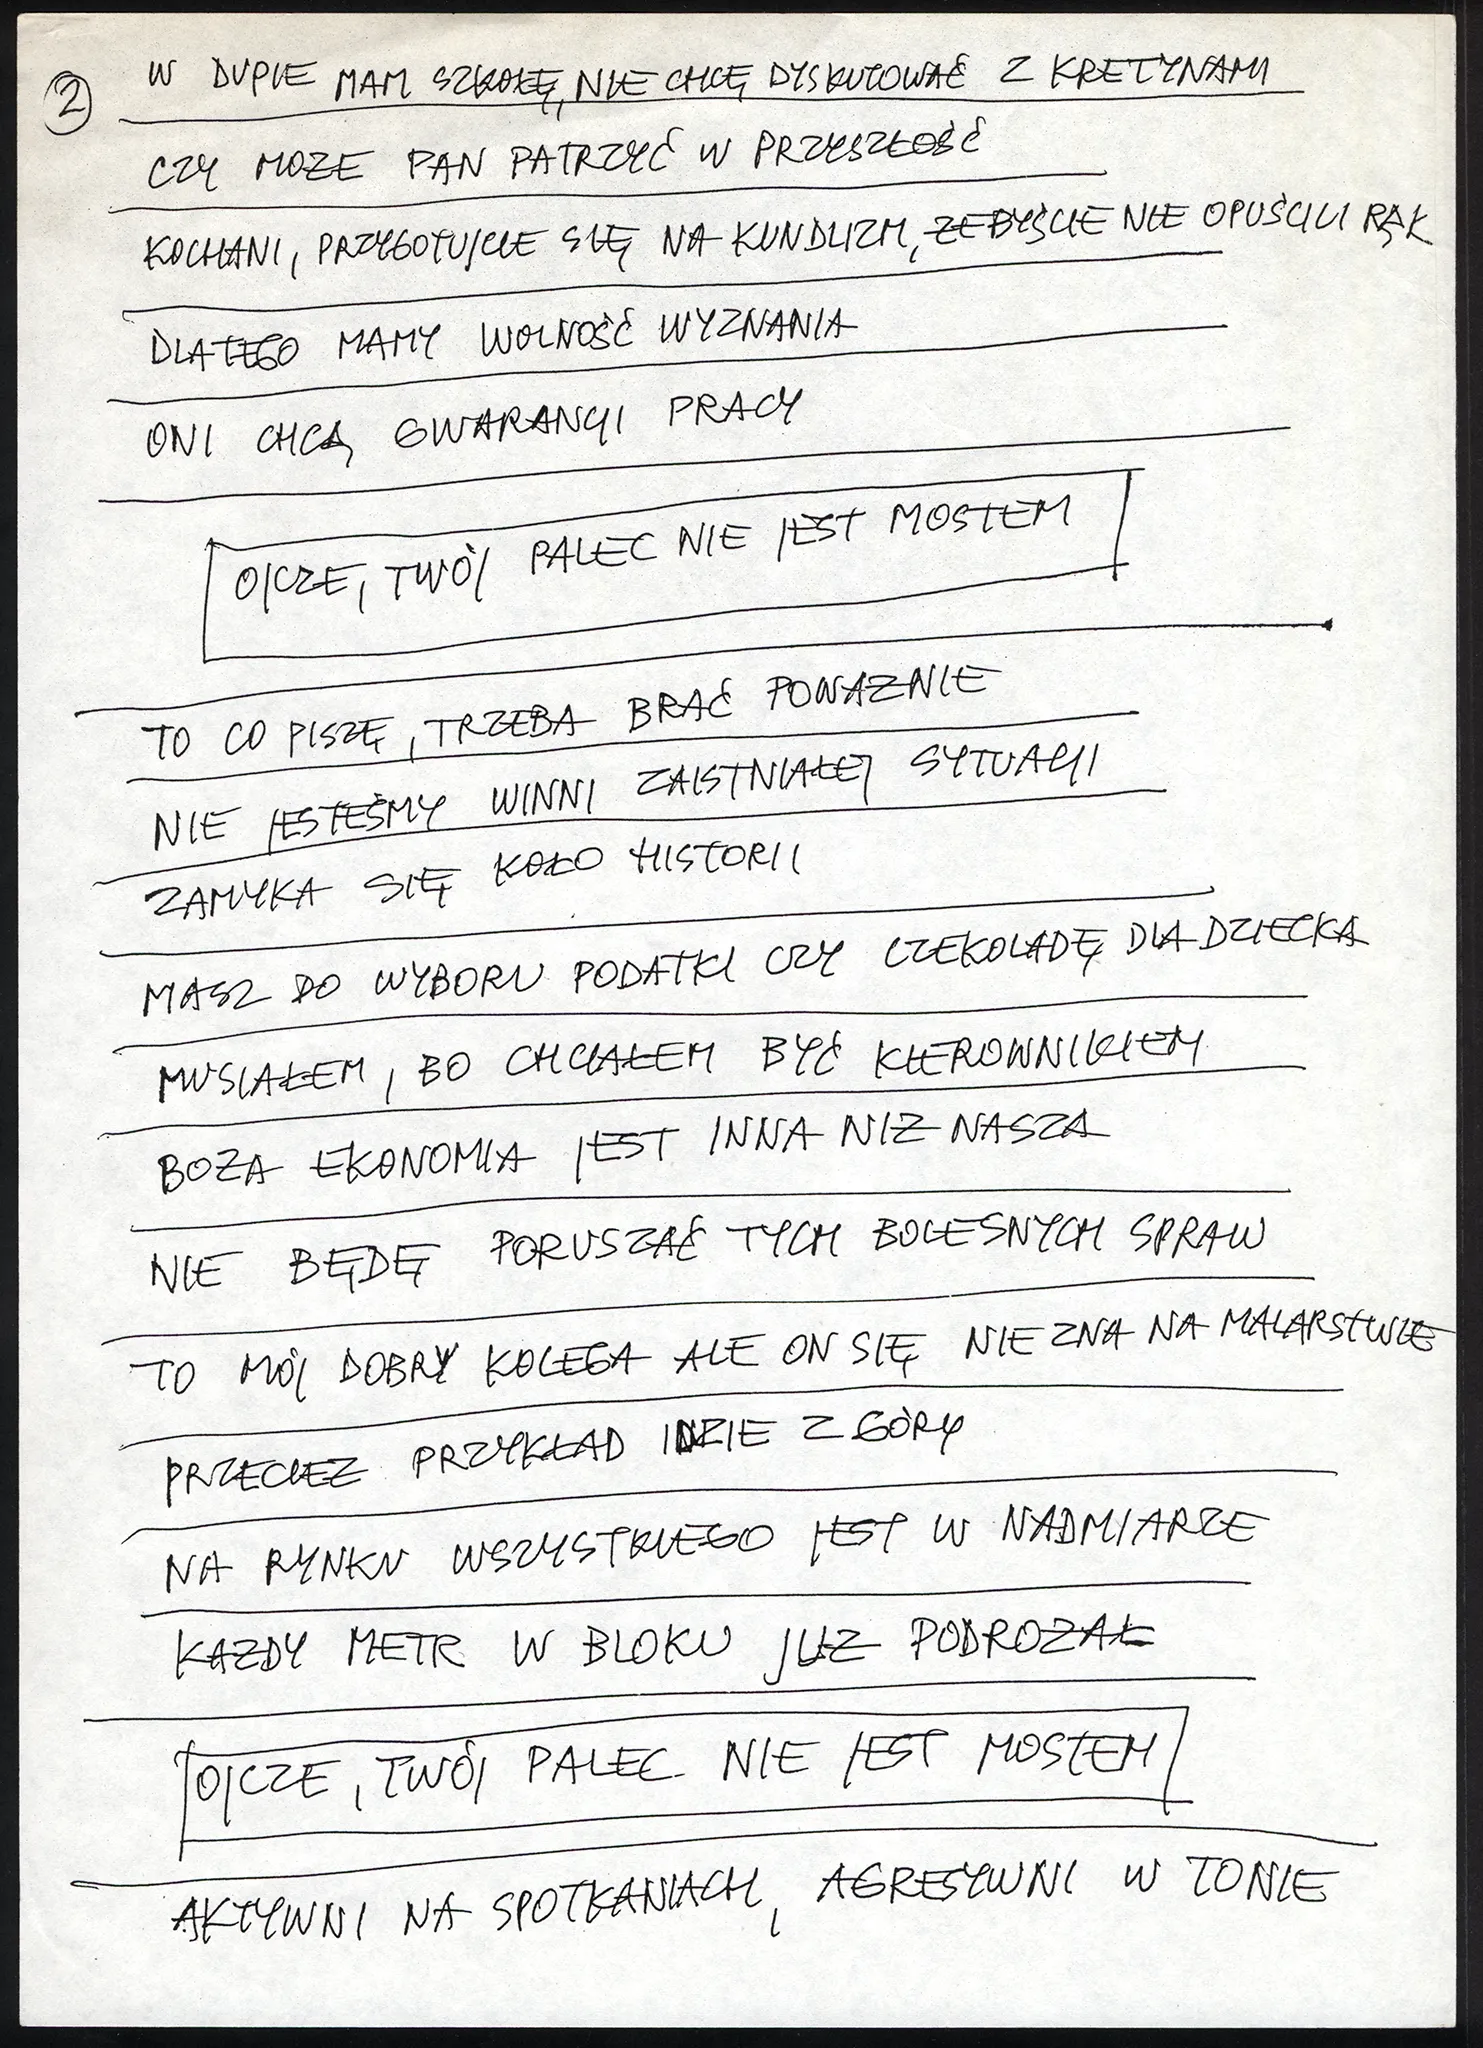 2
W DUPIE MAM SZKOŁĘ, NIE CHCĘ DYSKUTOWAĆ Z KRETYNAMI
CZY MOZE PAN PATRZYĆ W PRZYSZŁOŚĆ
KOCHANI, PRZYGOTUJCIE SIĘ NA KUNDLIZM, ZEBYŚCIE NIE OPUŚCILI RĄK
DLATEGO MAMY WOLNOŚĆ WYZNANIA
ONI CHCĄ GWARANCJI PRACY
OJCZE, TWÓJ PALEC NIE JEST MOSTEM
TO CO PISZĘ, TRZEBA BRAĆ POWAZNIE
NIE JESTEŚMY WINNI ZAISTNIAŁEJ SYTUACJI
ZAMYKA SIĘ KOŁO HISTORII
MASZ DO WYBORU PODATKI CZY CZEKOLADĘ DLA DZIECKA
MUSIAŁEM, BO CHCIAŁEM BYĆ KIEROWNIKIEM
BOZA EKONOMIA JEST INNA NIZ NASZA
NIE BĘDĘ PORUSZAĆ TYCH BOLESNYCH SPRAW
TO MÓJ DOBRY KOLEGA ALE ON SIĘ NIE ZNA NA MALARSTWIE
PRZECIEZ PRZYKŁAD IDZIE Z GÓRY
NA RYNKU WSZYSTKIEGO JEST W NADMIARZE
KAZDY METR W BLOKU JUZ PODROZAŁ
OJCZE, TWÓJ PALEC NIE JEST MOSTEM
AKTYWNI NA SPOTKANIACH, AGRESYWNI W TONIE